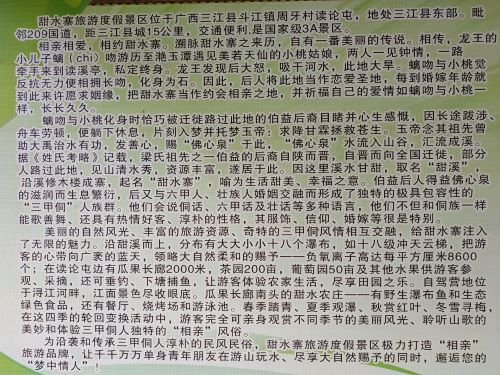 甜水寨旅游度假景区位于广西三江县斗江镇周牙村读论屯，地处三江县东部。毗
邻209国道，距三江县城15公里，交通便利，是国家级3A景区。
相亲相爱，相约甜水寨。溯脉甜水寨之来历，自有一番美丽的传说。相传，龙王的
小儿子螭（chi）吻游历至滟玉潭遇见美若天仙的小桃姑娘，两人一见钟情，一路
牵手来到读溪亭，私定终身。龙王发现后大怒，吸干河水，此地大旱。螭吻与小桃觉
反抗无力便相拥长吻，化身为石。因此，后人将此地当作恋爱圣地，每到婚嫁年龄就
到此来许愿求姻缘，把甜水寨当作约会相亲之地，并祈福自己的爱情如螭吻与小桃一
样，长长久久。
螭吻与小桃化身时恰巧被迁徙路过此地的伯益后裔目睹并心生感慨，因长途跋涉、
舟车劳顿，便躺下休息，片刻入梦并托梦玉帝：求降甘霖拯救苍生。玉帝念其祖先曾
助大禹治水有功，发善心，赐“佛心泉”于此，“佛心泉”水流入山谷，汇流成溪。
据《姓氏考略》记载，梁氏祖先之一伯益的后裔自陕而晋，自晋而向全国迁徙，部分
人路过此地，见山清水秀，资源丰富，遂居于此。因这里溪水甘甜，取名“甜溪”，
沿溪修木楼成寨，起名“甜水寨”，喻为生活甜美、幸福之意。伯益后人得益佛心泉
的滋润而生息繁衍，后又与六甲人、壮族人婚姻交融而形成了独特的极具包容性的
“三甲侗”人族群。他们会说侗话、六甲话及壮话等多种语言，他们不但和侗族一样
能歌善舞，还具有热情好客、淳朴的性格，其服饰、信仰、婚嫁等很是特别。
美丽的自然风光、丰富的旅游资源、奇特的三甲侗风情相互交融，给甜水寨注入
了无限的魅力。沿甜溪而上，分布有大大小小十八个瀑布，如十八级冲天云梯，把游
客的心带向广袤的蓝天，领略大自然柔和的赐予——负氧离子高达每平方厘米8600
个；在读论屯边有瓜果长廊2000米，茶园200亩，葡萄园50亩及其他水果供游客参
观、采摘，还可垂钓、下塘捕鱼，让游客体验农家生活，尽享田园之乐。自驾营地位
于浔江河畔，江面景色尽收眼底。瓜果长廊南头的甜水农庄——有野生瀑布鱼和生态
绿色食品，还有餐厅、烧烤场和游泳池。春季踏青、夏季观瀑、秋赏红叶、冬雪寻梅，
在这四季的轮回变换活动中，游客完全可亲身观赏不同季节的美丽风光、聆听山歌的
美妙和体验三甲侗人独特的“相亲”风俗。
为沿袭和传承三甲侗人淳朴的民风民俗，甜水寨旅游度假景区极力打造“相亲”
旅游品牌，让千千万万单身青年朋友在游山玩水、尽享大自然赐予的同时，邂逅您的
“梦中情人”！